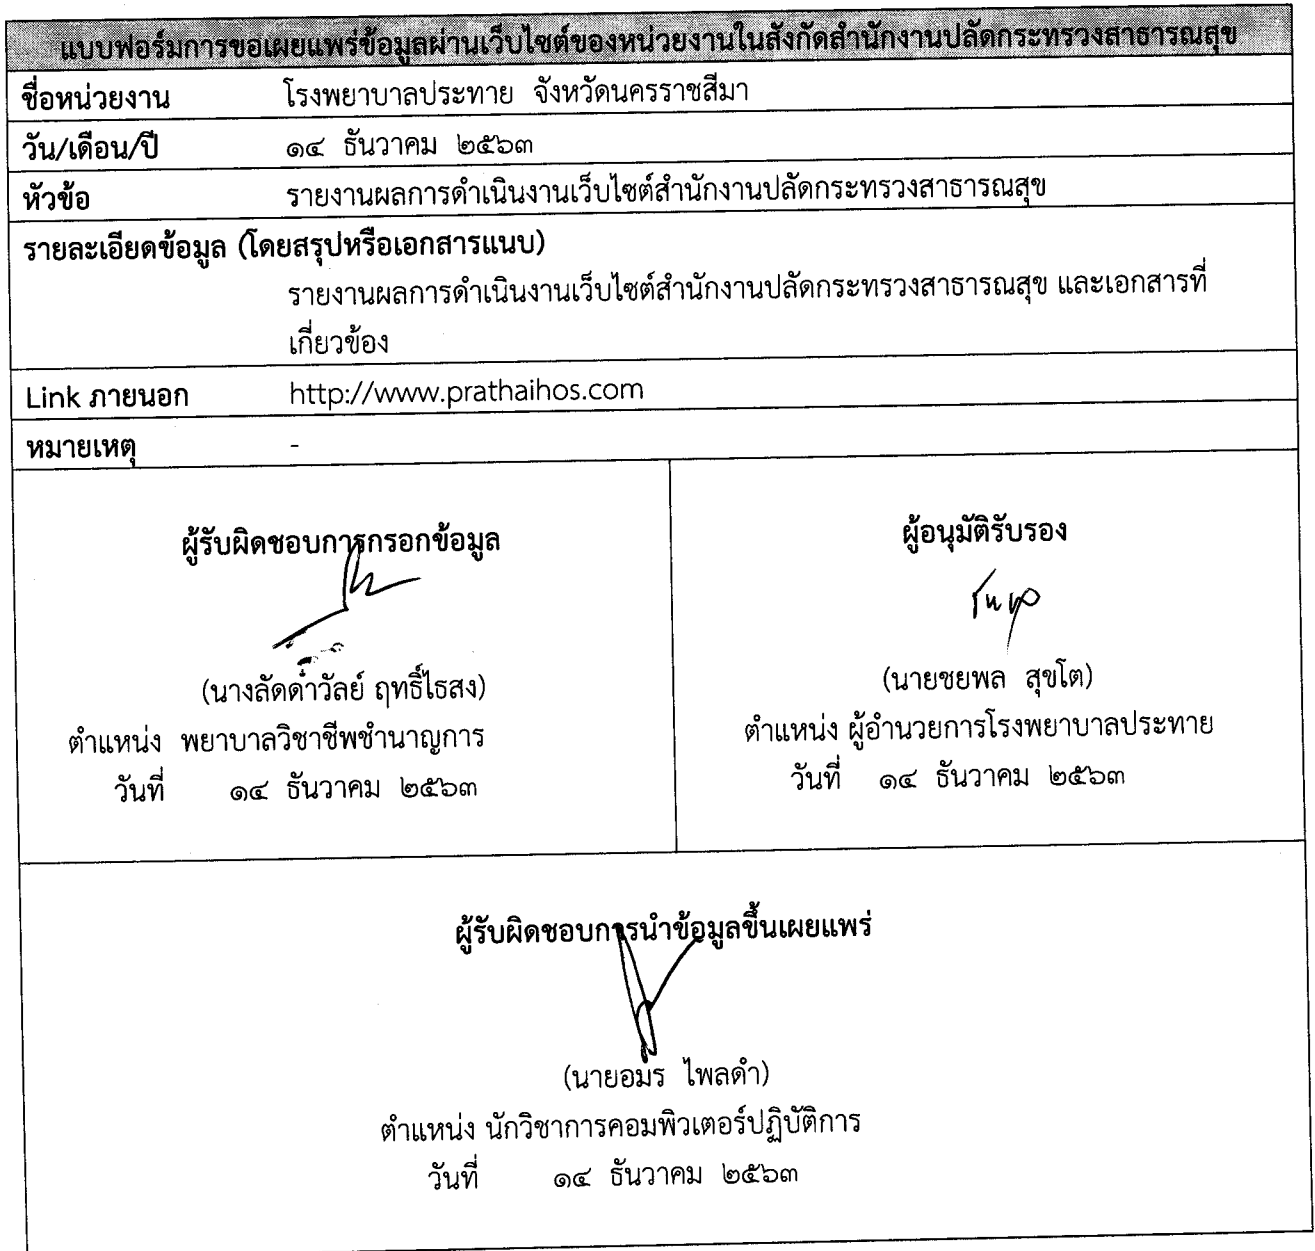 แบบฟอร์มการขอเผยแพร่ข้อมูลผ่านเว็บไซต์ของหน่วยงานในสังกัดสำนักงานปลัดกระทรวงสาธารณสุข
ชื่อหน่วยงาน โรงพยาบาลประทาย จังหวัดนครราชสีมา
วัน/เดือน/ปี ๑๔ ธันวาคม ๒๕๖๓
หัวข้อ รายงานผลการดำเนินงานเว็บไซต์สำนักงานปลัดกระทรวงสาธารณสุข
รายละเอียดข้อมูล (โดยสรุปหรือเอกสารแนบ)
รายงานผลการดำเนินงานเว็บไซต์สำนักงานปลัดกระทรวงสาธารณสุข และเอกสารที่
เกี่ยวข้อง
Link ภายนอก http://www.prathaihos.com
หมายเหตุ -
ผู้รับผิดชอบการกรอกข้อมูล
(นางลัดดำวัลย์ ฤทธิ์ไธสง)
ตำแหน่ง พยาบาลวิชาชีพชำนาญการ
วันที่ ๑๔ ธันวาคม ๒๕๖๓
ผู้อนุมัติรับรอง
(นายชยพล สุขโต)
ตำแหน่ง ผู้อำนวยการโรงพยาบาลประทาย
วันที่ ๑๔ ธันวาคม ๒๕๖๓
ผู้รับผิดชอบการนำข้อมูลขึ้นเผยแพร่
(นายอมร ไพลดำ)
ตำแหน่ง นักวิชาการคอมพิวเตอร์ปฏิบัติการ
วันที่ ๑๔ ธันวาคม ๒๕๖๓